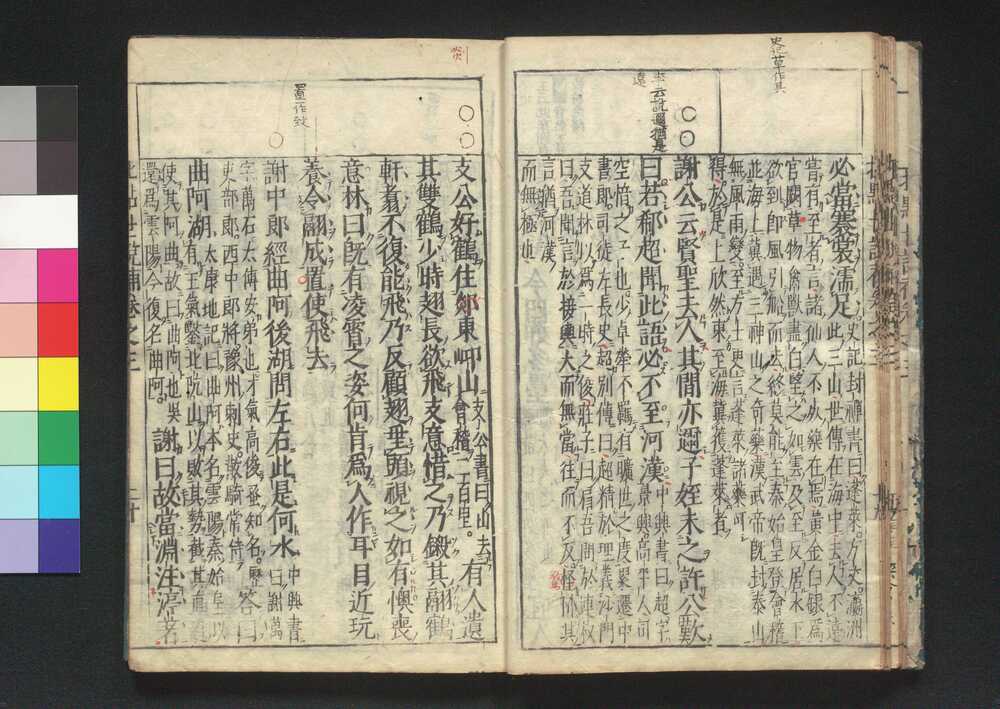 史記草作其
必當褰裳濡足
史記封禪書曰蓬萊方丈瀛洲
此三山世傳在海中去人不遠
嘗有至者言諸仙人不死藥在焉黃金白銀爲
宮闕草物禽獸盡白望之如雲及至反居水下
欲到即風引船而去終莫能至秦始皇登會稽
並海上冀遇三神山之奇藥漢武帝既封泰山
無風雨變至方士更言蓬萊諸藥可
得於是上欣然東至海冀獲蓬萊者
謝公云賢聖去人其間亦邇子姪未之許公歎
曰若郗超聞此語必不至河漢
中興書曰超字
景興高平人司
空愔之子也少卓犖不羈有曠世之度累遷中
書郎司徒左長史超別傳曰超精於理義沙門
支道林以爲一時之俊莊子曰肩吾問於連叔
曰吾聞言於接輿大而無當往而不反怪怖其
言猶河漢
而無極也
支公好鶴住剡東𡵙山
支公書曰山去
會稽二百里
有人遺
其雙鶴少時翅長欲飛支意惜之乃鎩其翮鶴
軒翥不復能飛乃反顧翅垂頭視之如有懊喪
意林曰既有凌霄之姿何肯爲人作耳目近玩
養令翮成置使飛去
置一作致
謝中郎經曲阿後湖問左右此是何水
中興書
曰謝萬
字萬石太傅安弟也才氣高俊蚤知名歷
吏部郎西中郎將豫州刺史散騎常侍
答曰
曲阿湖
太康地記曰曲阿本名雲陽秦始皇以
有王氣鑿北阬山以敗其勢截其直道
使其阿曲故曰曲阿也吳
還爲雲陽今復名曲阿
謝曰故當淵注渟著